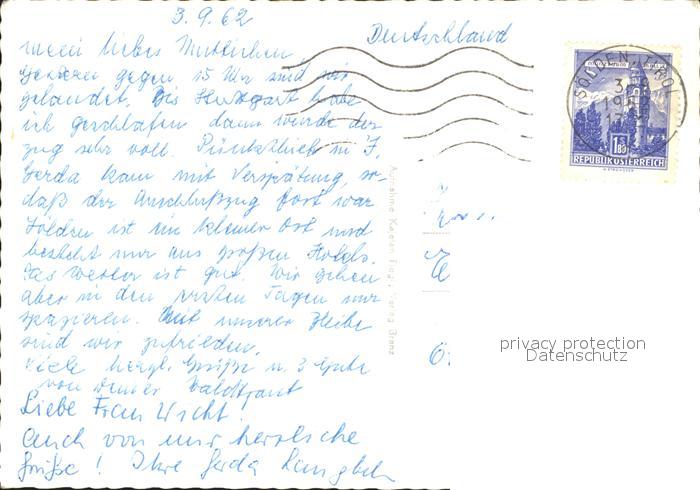 3.9.62
Deutschland
mein liebes Muttchen
Gestern gegen 15 Uhr sind wir
gelandet. Bis Stuttgart habe
ich geschlafen dann wurde der
Zug sehr voll. Pünktlich in J.
Gerda kam mit Verspätung, so-
daß der Anschlußzug fort war
Sölden ist ein kleiner Ort und
besteht nur aus großen Hotels.
Das Wetter ist gut. Wir gehen
aber in den ersten Tagen nur
spazieren. Mit unserer Bleibe
sind wir zufrieden.
Viele herzl. Grüße u. 3 Gute
von Deiner Waldtraut
Liebe Frau Ucht!
Auch von mir herzliche
Grüße! Ihre Gerda
SÖLDEN, TIROL
1.80
REPUBLIK ÖSTERREICH
privacy protection
Datenschutz